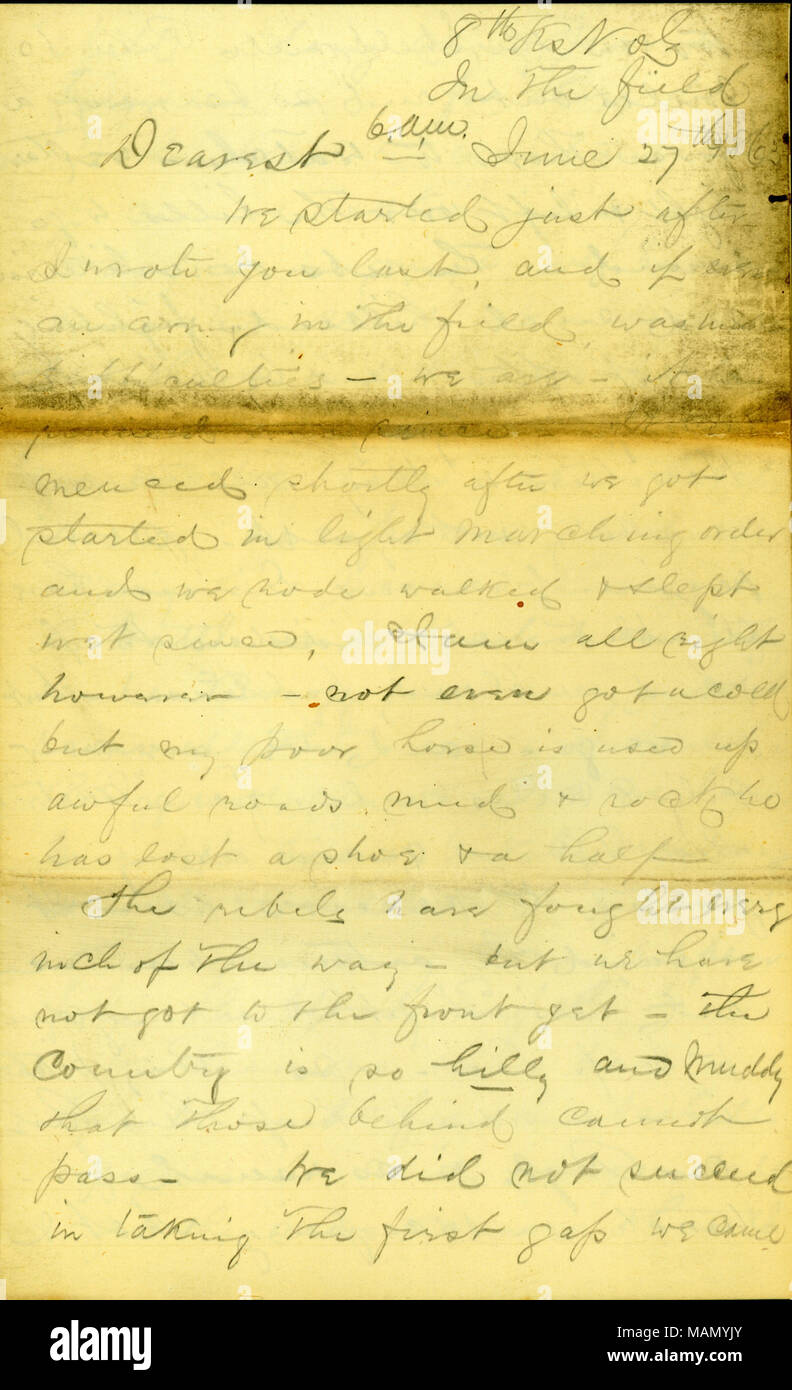 8th Ks Vol
In the field
6. a.m.
Dearest June 27th 63
We started just after
I wrote you last, and if ever
an army in the field, was in
difficulties - we are - it
since -
menced shortly after we got
started in light marching order
and we rode walked & slept
wet since, I am all right
however - not even got a cold
but my poor horse is used up
awful roads mud & rock he
has lost a shoe & a half
The rebels have fought every
inch of the way - but we have
not got to the front yet - the
Country is so hilly and Muddy
that those behind cannot
pass - We did not succeed
in taking the first gap we came
alamy
alamy
a
a
alamy
Image ID: MAMYJY
www.alamy.com